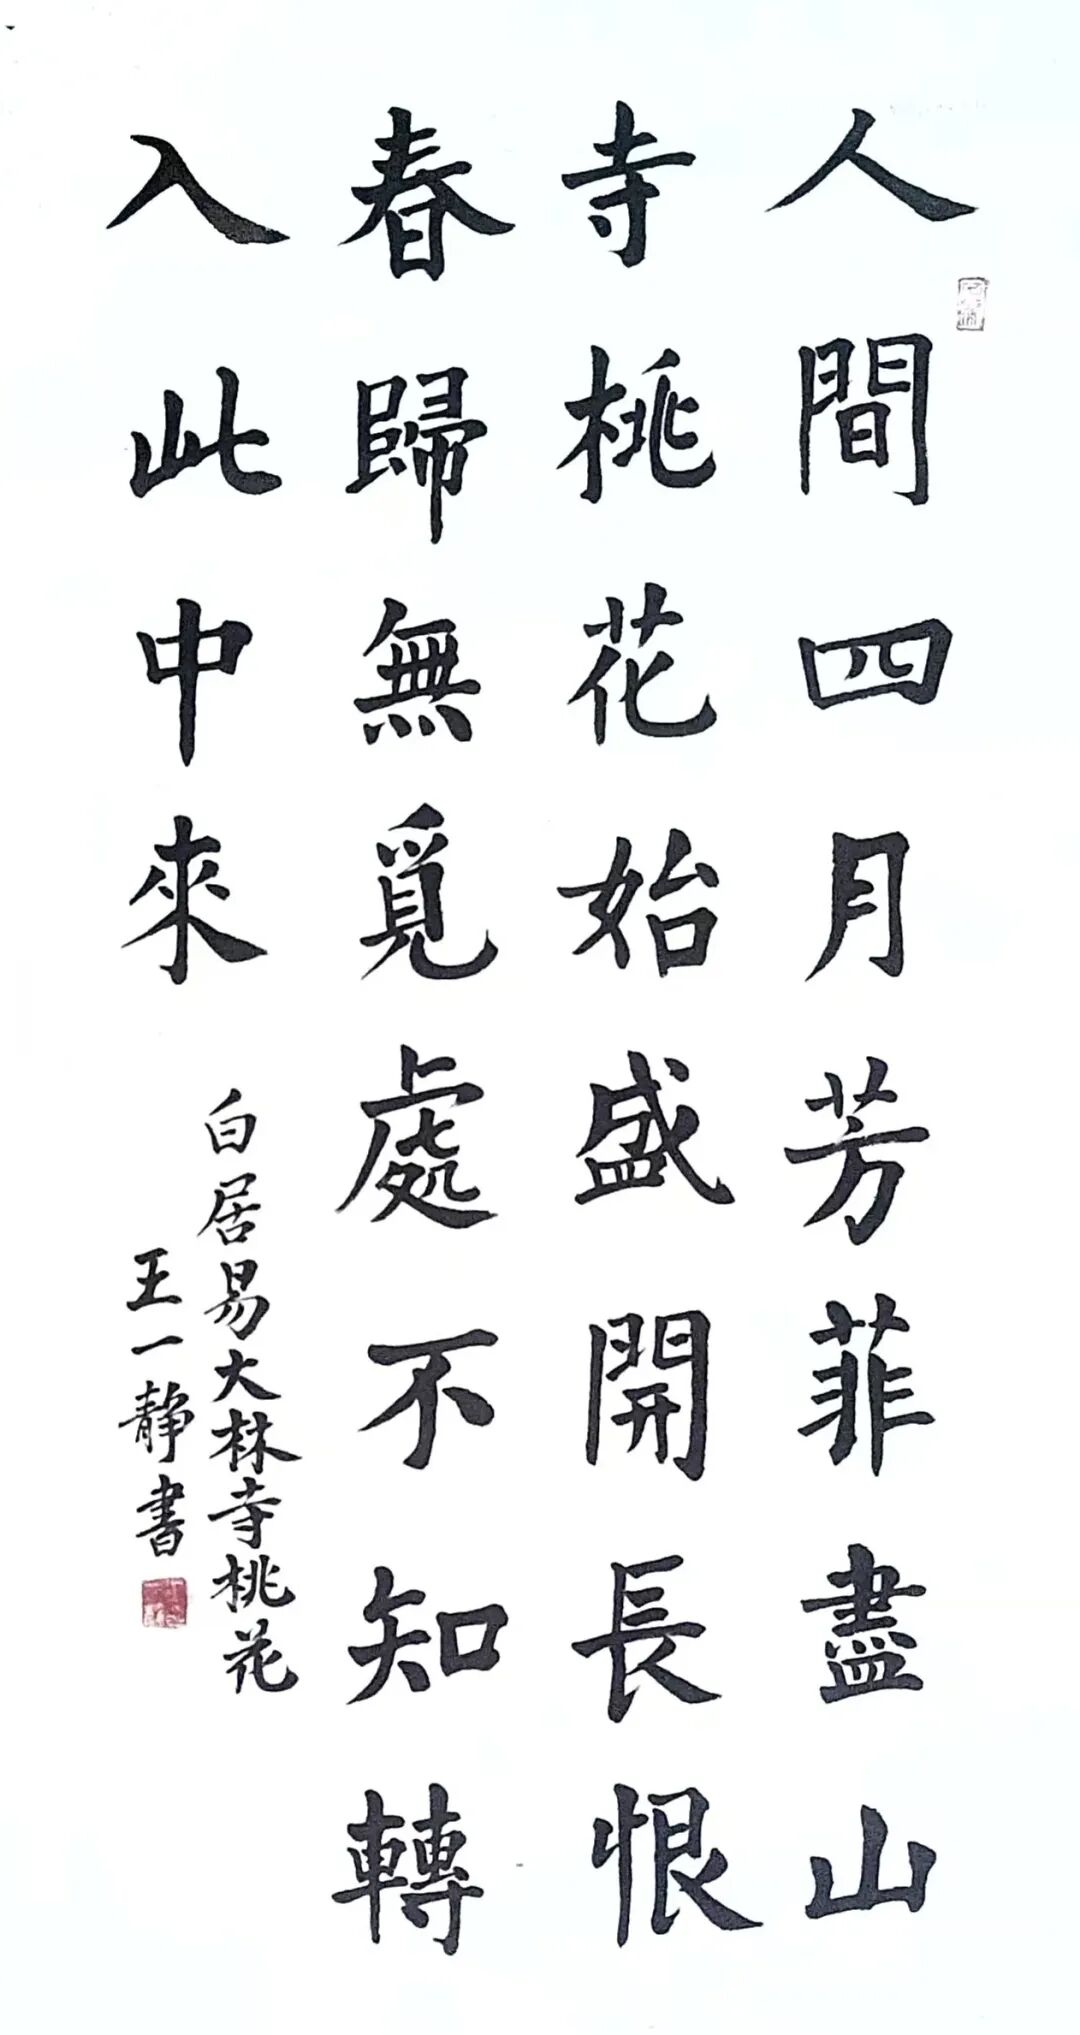 人間四月芳菲盡山
寺桃花始盛開長恨
春歸無覓處不知轉
入此中來
白居易大林寺桃花
王一靜書